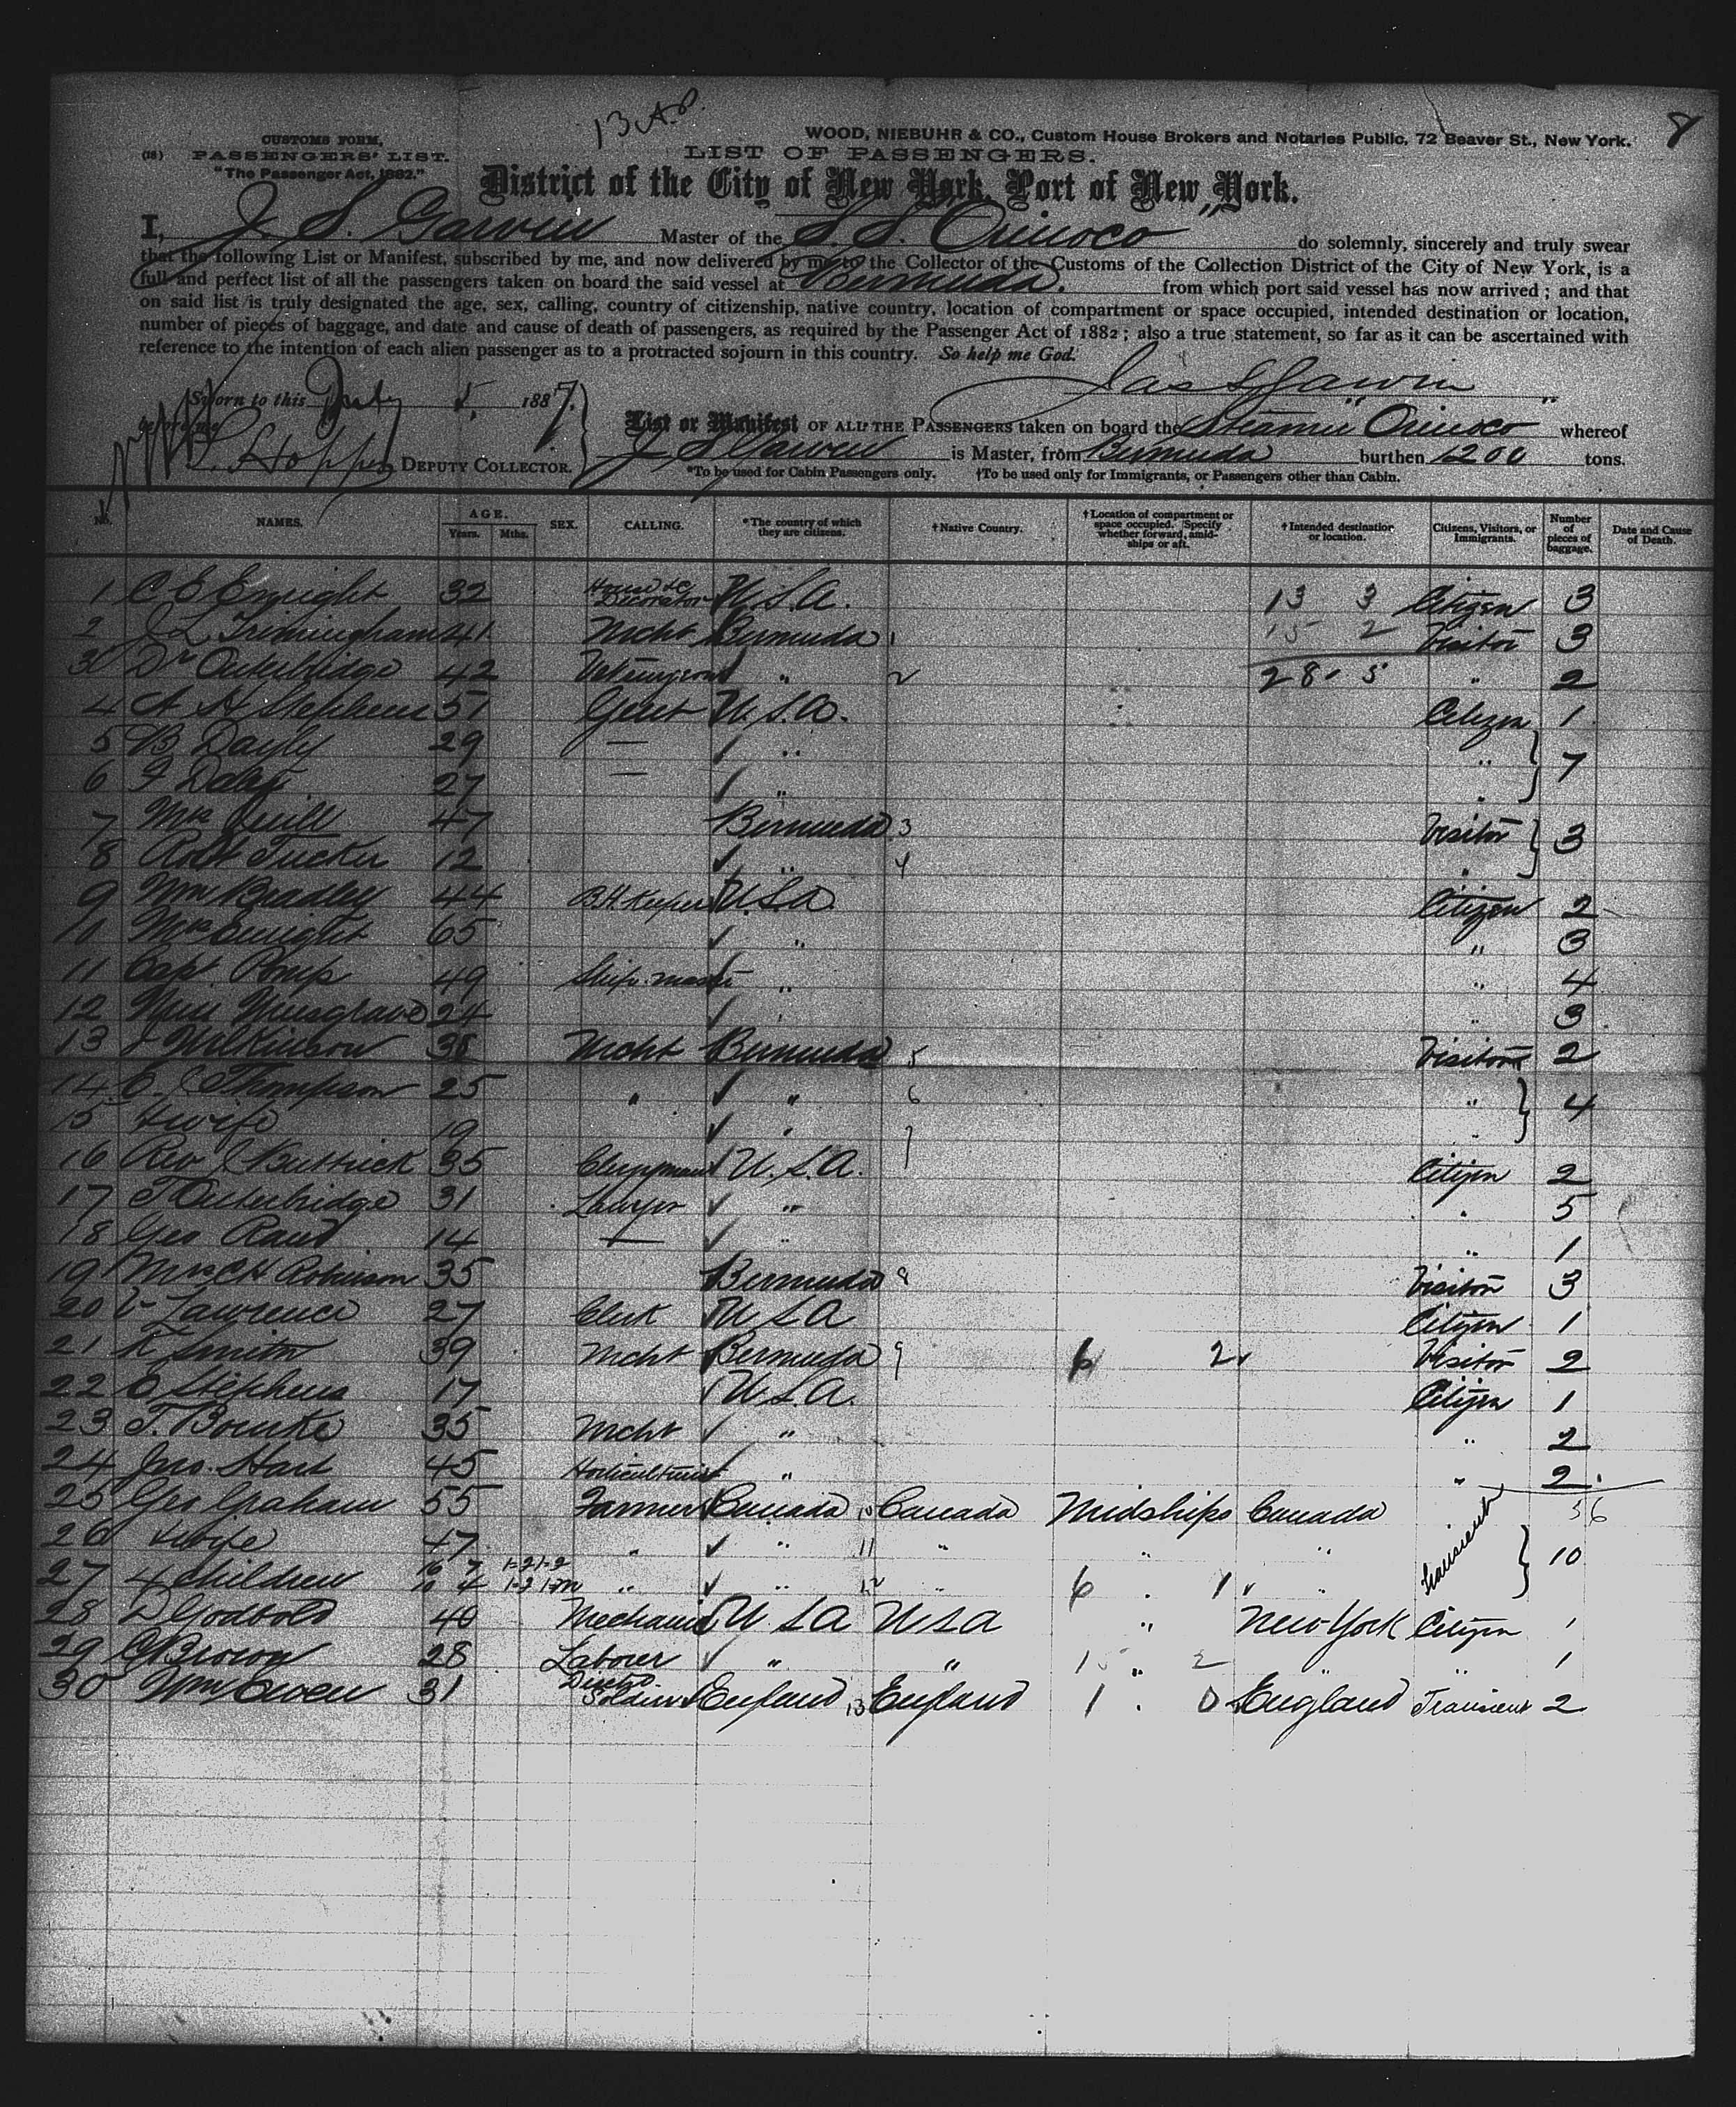 13 A.P.
8
CUSTOMS FORM,
(18) PASSENGERS' LIST.
"The Passenger Act, 1882."
WOOD, NIEBUHR & CO., Custom House Brokers and Notaries Public, 72 Beaver St., New York.
LIST OF PASSENGERS.
District of the City of New York, Port of New York.
I, J. S. Garvin Master of the S. S. Orinoco do solemnly, sincerely and truly swear
that the following List or Manifest, subscribed by me, and now delivered by me to the Collector of the Customs of the Collection District of the City of New York, is a
full and perfect list of all the passengers taken on board the said vessel at Bermuda. from which port said vessel has now arrived; and that
on said list is truly designated the age, sex, calling, country of citizenship, native country, location of compartment or space occupied, intended destination or location,
number of pieces of baggage, and date and cause of death of passengers, as required by the Passenger Act of 1882; also a true statement, so far as it can be ascertained with
reference to the intention of each alien passenger as to a protracted sojourn in this country. So help me God.
Jas S Garvin
Sworn to this July 5, 1887.
before me
List or Manifest OF ALL THE PASSENGERS taken on board the Steamer "Orinoco" whereof
Hopper DEPUTY COLLECTOR.
J S Garvin is Master, from Bermuda burthen 1200 tons.
*To be used for Cabin Passengers only. †To be used only for Immigrants, or Passengers other than Cabin.
No. NAMES. AGE. Years. Mths. SEX. CALLING. *The country of which they are citizens. †Native Country. †Location of compartment or space occupied. Specify whether forward, amidships or aft. †Intended destination or location. Citizens, Visitors, or Immigrants. Number of pieces of baggage. Date and Cause of Death.
1 C E Enright 32 House &c Decorator U.S.A. 13 3 Citizen 3
2 J L Trimingham 41 Mcht Bermuda 1 15 2 Visitor 3
3 Dr Outerbridge 42 " 2 28 5 " 2
4 A H Stephens 51 Gent U.S.A. Citizen 1
5 B Dayly 29 — " " 7
6 F 27 — " "
7 Mrs 47 Bermuda 3 Visitor 3
8 Robt Tucker 12 " 4 "
9 Wm Bradley 44 B.H. Keeper U.S.A. Citizen 2
10 Mrs Enright 65 " " 3
11 Capt 49 Ship master " " 4
12 Musgrave 24 " " 3
13 J Wilkinson 38 Mcht Bermuda 5 Visitor 2
14 E C Thompson 25 " " 6 " 4
15 & wife 19 " 7 "
16 Rev J Buttrick 35 Clergyman U.S.A. Citizen 2
17 T Outerbridge 31 Lawyer " " 5
18 Geo Rand 14 — " " 1
19 Mrs C H Robinson 35 Bermuda 8 Visitor 3
20 V Lawrence 27 Clerk U S A Citizen 1
21 39 Mcht Bermuda 9 6 2 Visitor 2
22 Stephens 17 U.S.A. Citizen 1
23 T. Bourke 35 Mcht " " 2
24 Jno. Hart 45 Horticulturist " " 2
56
25 Geo Graham 55 Farmer Canada 10 Canada Midships Canada Transient
26 & wife 47 " " 11 " " " 10
27 4 children 16 7 10 4 " " 12 " 6 1 "
28 D Godbold 40 Mechanic U S A U S A " New York Citizen 1
29 C Brown 28 Laborer " " " 15 2 1
30 Wm Owen 31 Disch'd Soldier England 13 England 1 0 England Transient 2